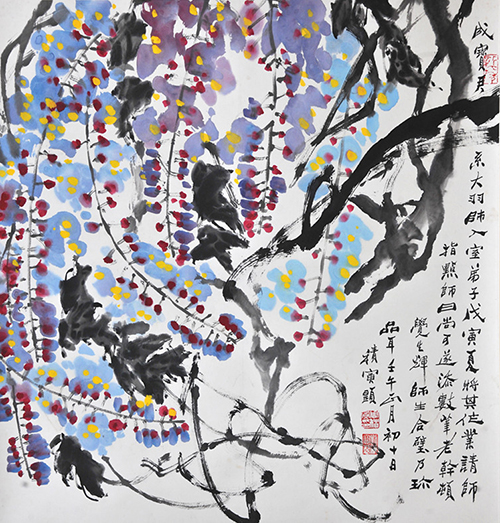 成寶君
系大羽師入室弟子戊寅夏將其作業請師
指點師曰尚可遂添數筆老幹頓
覺生輝師生合璧乃珎
品耳壬午正月初十日
積寅題